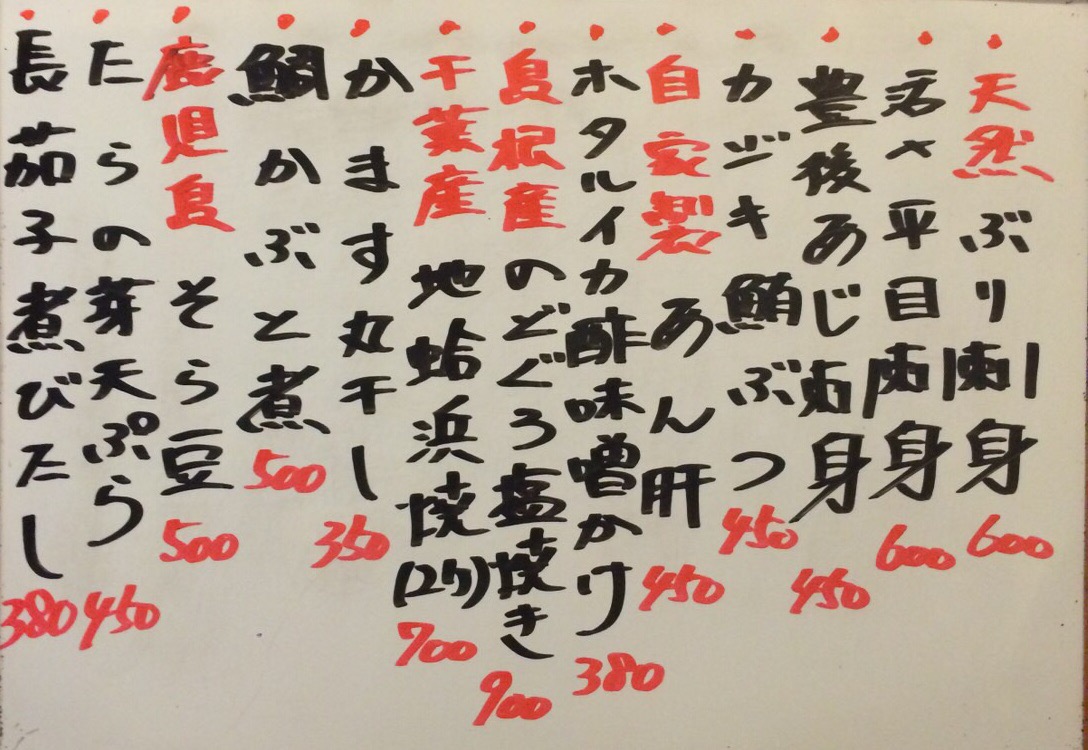 天然ぶり刺身 600
活〆平目刺身 600
豊後あじ刺身 450
カジキ鮪ぶつ 450
自家製あん肝 450
ホタルイカ酢味噌かけ 380
島根産のどぐろ塩焼き 900
千葉産地蛤浜焼(2ケ) 700
かます丸干し 350
鯛かぶと煮 500
鹿児島そら豆 500
たらの芽天ぷら 450
長茄子煮びたし 380